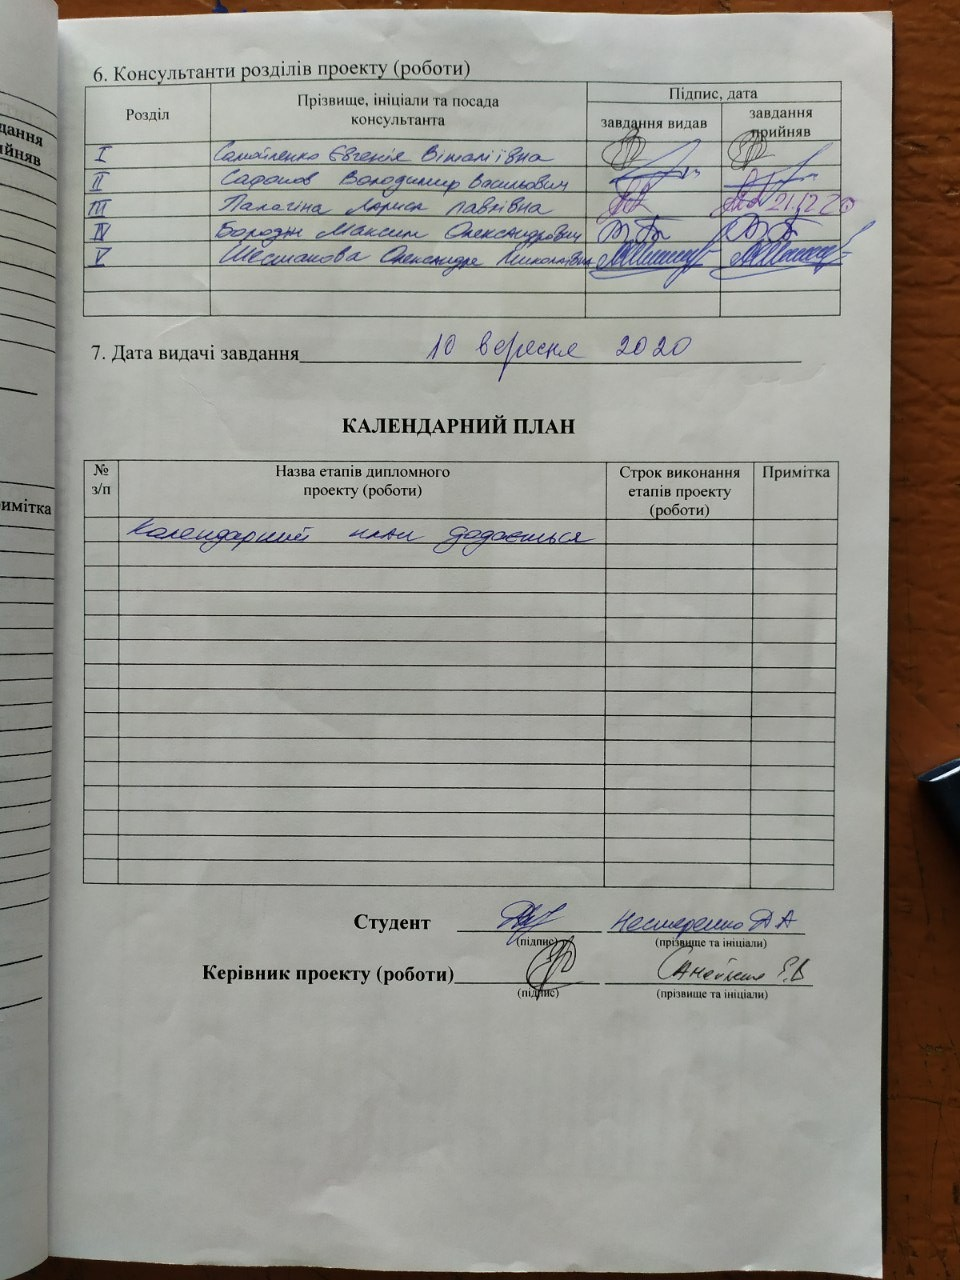 дання
йняв
имітка
6. Консультанти розділів проекту (роботи)
Розділ
Прізвище, ініціали та посада
консультанта
Підпис, дата
завдання видав
завдання
прийняв
I Самойленко Євгенія Віталіївна
II Сафонов Володимир Васильович
III Палагіна Лариса Павлівна 21.12.20
IV Бородін Максим Олександрович
V Шестакова Олександра Миколаївна
7. Дата видачі завдання 10 вересня 2020
КАЛЕНДАРНИЙ ПЛАН
№
з/п
Назва етапів дипломного
проекту (роботи)
Строк виконання
етапів проекту
(роботи)
Примітка
Календарний план додається
Студент Нестеренко Д А
(підпис) (прізвище та ініціали)
Керівник проекту (роботи) Є.В
(підпис) (прізвище та ініціали)